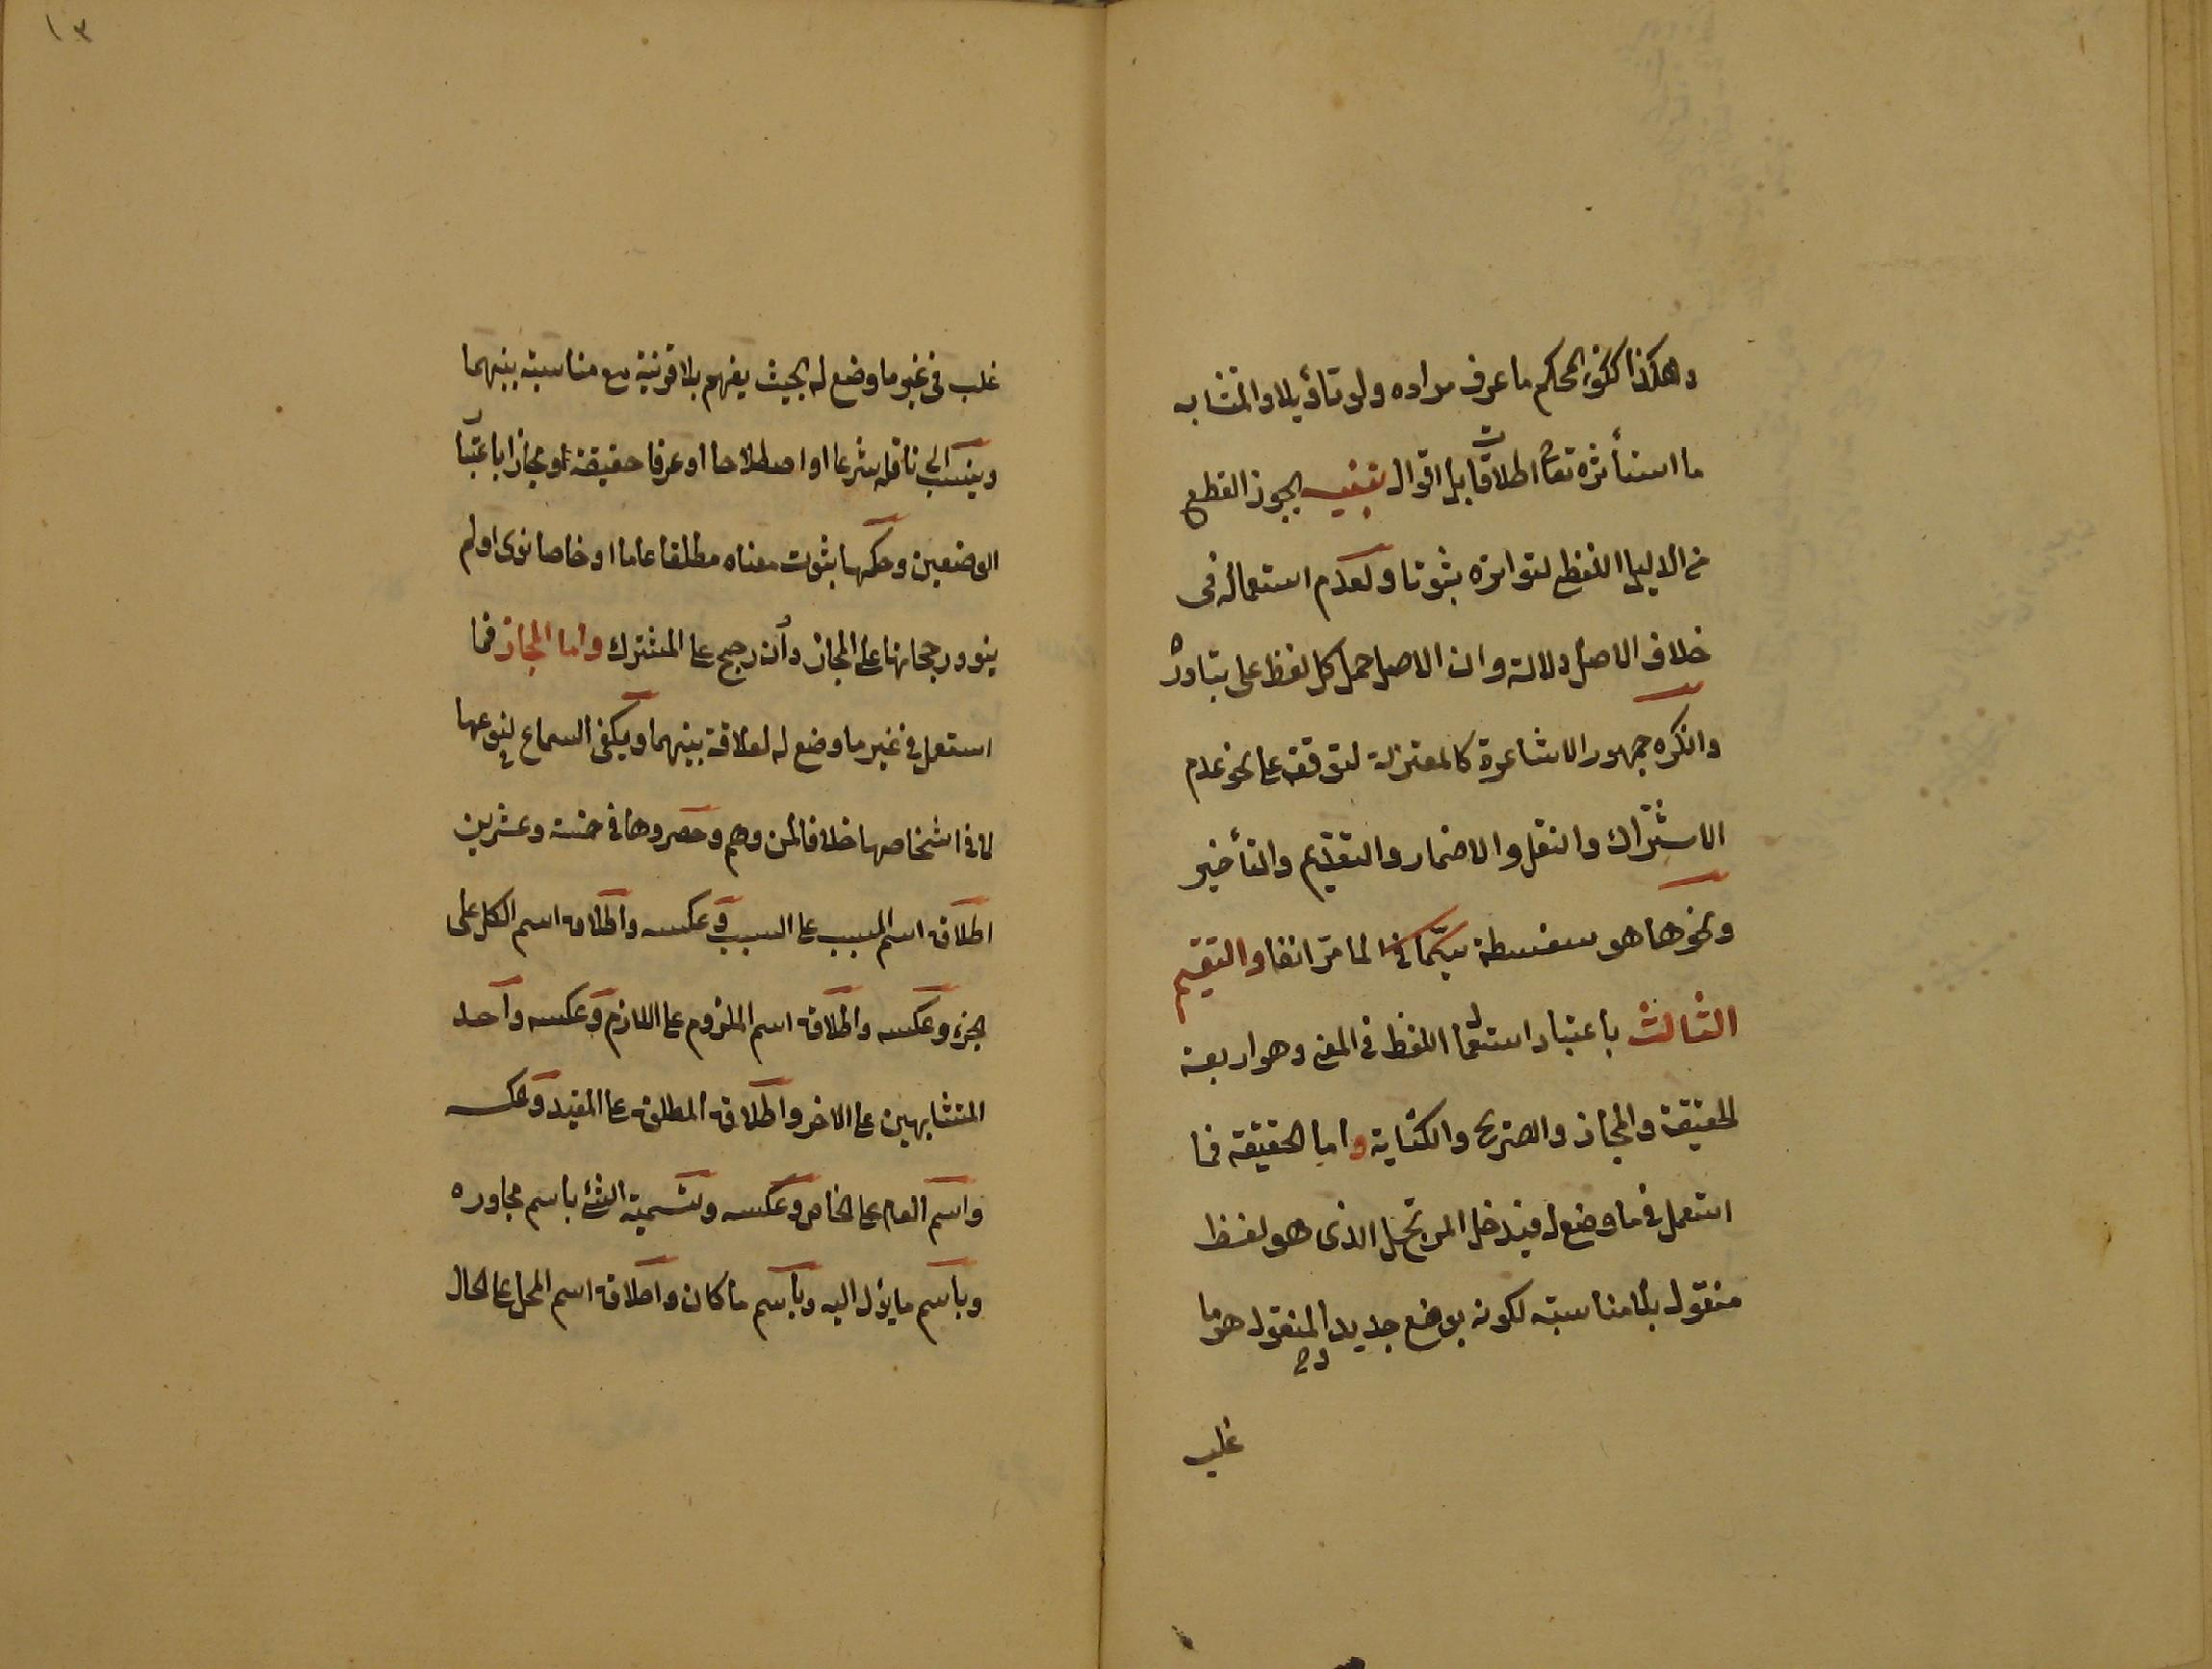 وهكذا المحكم ما عرف مراده ولو تأويلا والمتشابه
ما استأثره تعا اطلاقا بل اقوال تنبيه يجوز القطع
من الدليل اللفظ لتواتره ثبوتا ولعدم استعماله فى
خلاف الاصل دلالة وان الاصل حمل كل لفظ على تبادره
وانكره جمهور الاشاعرة كالمعتزلة لتوقفه على نحو عدم
الاشتراك والنقل والاضمار والتقديم والتأخير
ونحوها هو سفسطة لما مرّ انفا والتقسيم
الثالث باعتبار استعمال اللفظ فى المعنى وهو اربعة
الحقيقة والمجاز والصريح والكناية واما الحقيقة فما
استعمل فيما وضع له فيدخل المرتجل الذى هو لفظ
منقول بلا مناسبة لكونه بوضع جديد والمنقول هو ما
غلب
١٣
غلب فى غير ما وضع له بحيث يفهم بلا قرينة مع مناسبة بينهما
وينسب الى ناقله شرعا او اصطلاحا او عرفا حقيقة او مجازا باعتبار
الوضعين وحكمها ثبوت معناه مطلقا عاما او خاصا نوى او لم
ينو ورجحانها على المجاز وان رجح على المشترك واما المجاز فما
استعمل فى غير ما وضع له لعلاقة بينهما ويكفى السماع لنوعها
لا فى اشخاصها خلافا لمن وهم وحصروها فى خمسة وعشرين
اطلاق اسم المسبب على السبب وعكسه واطلاق اسم الكل على
الجزء وعكسه واطلاق اسم الملزوم على اللازم وعكسه واحد
المتشابهين على الاخر واطلاق المطلق على المقيد وعكسه
واسم العام على الخاص وعكسه وتسمية الشئ باسم مجاوره
وباسم ما يؤل اليه وباسم ما كان واطلاق اسم المحل على الحال